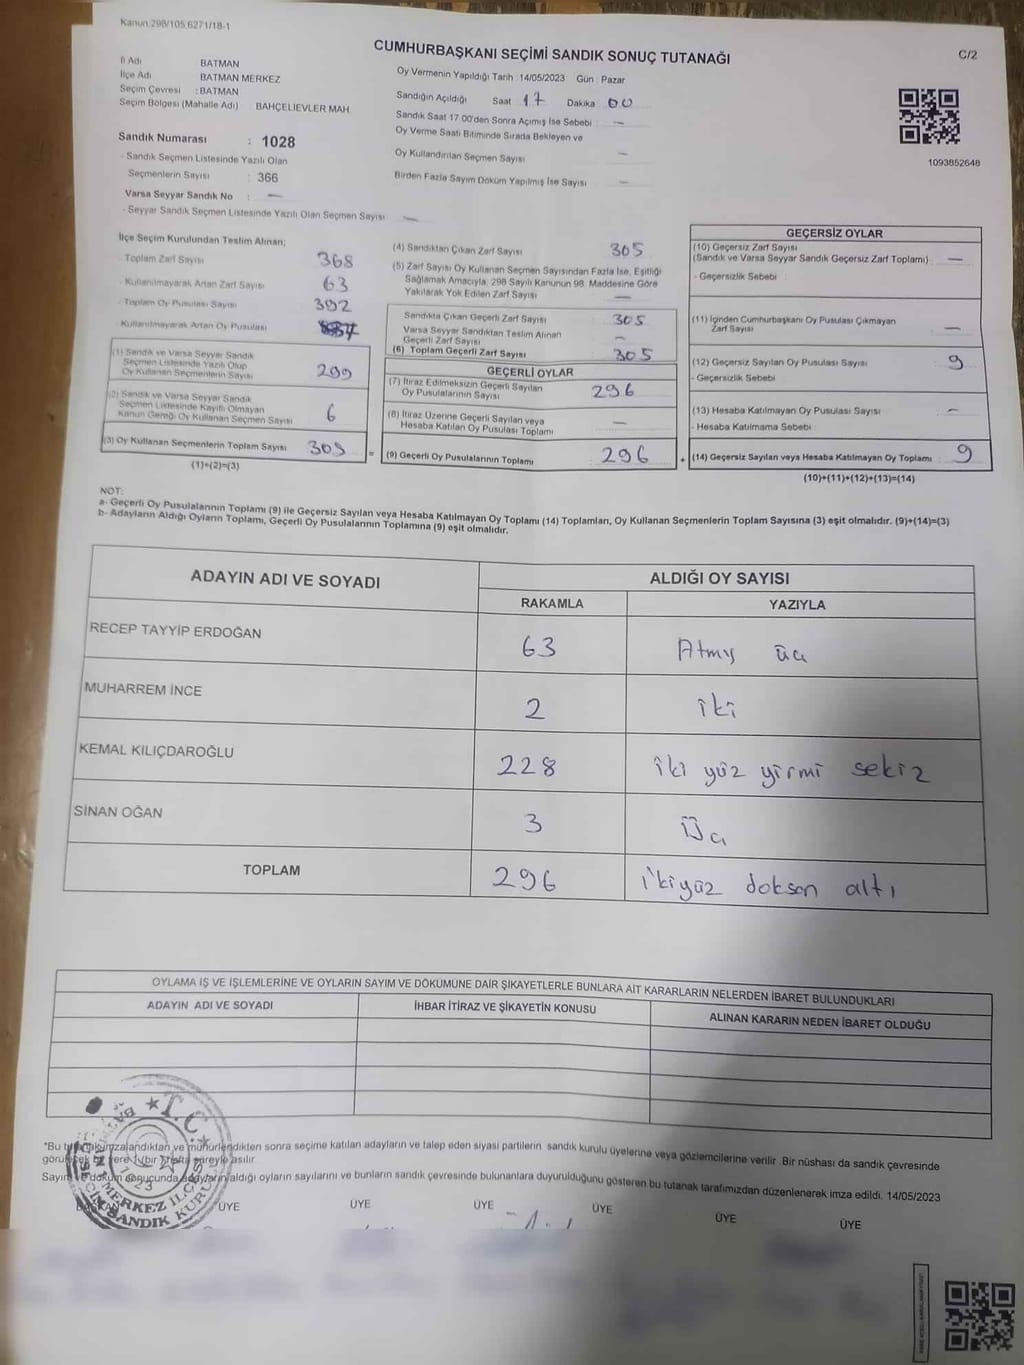 Kanun 298/105.6271/18-1
CUMHURBAŞKANI SEÇİMİ SANDIK SONUÇ TUTANAĞI
C/2
İl Adı BATMAN
İlçe Adı BATMAN MERKEZ
Seçim Çevresi : BATMAN
Seçim Bölgesi (Mahalle Adı) BAHÇELİEVLER MAH.
Sandık Numarası : 1028
- Sandık Seçmen Listesinde Yazılı Olan
Seçmenlerin Sayısı : 366
Varsa Seyyar Sandık No : —
- Seyyar Sandık Seçmen Listesinde Yazılı Olan Seçmen Sayısı —
Oy Vermenin Yapıldığı Tarih 14/05/2023 Gün : Pazar
Sandığın Açıldığı Saat 17 Dakika 00
Sandık Saat 17:00'den Sonra Açılmış İse Sebebi : —
Oy Verme Saati Bitiminde Sırada Bekleyen ve
Oy Kullandırılan Seçmen Sayısı —
Birden Fazla Sayım Döküm Yapılmış İse Sayısı —
1093852648
İlçe Seçim Kurulundan Teslim Alınan;
- Toplam Zarf Sayısı 368
- Kullanılmayarak Artan Zarf Sayısı 63
- Toplam Oy Pusulası Sayısı 392
- Kullanılmayarak Artan Oy Pusulası
(1) Sandık ve Varsa Seyyar Sandık
Seçmen Listesinde Yazılı Olup
Oy Kullanan Seçmenlerin Sayısı 299
(2) Sandık ve Varsa Seyyar Sandık
Seçmen Listesinde Kayıtlı Olmayan
Kanun Gereği Oy Kullanan Seçmen Sayısı 6
(3) Oy Kullanan Seçmenlerin Toplam Sayısı 305 =
(1)+(2)=(3)
(4) Sandıktan Çıkan Zarf Sayısı 305
(5) Zarf Sayısı Oy Kullanan Seçmen Sayısından Fazla İse, Eşitliği
Sağlamak Amacıyla; 298 Sayılı Kanunun 98. Maddesine Göre
Yakılarak Yok Edilen Zarf Sayısı —
Sandıkta Çıkan Geçerli Zarf Sayısı 305
Varsa Seyyar Sandıktan Teslim Alınan
Geçerli Zarf Sayısı —
(6) Toplam Geçerli Zarf Sayısı 305
GEÇERLİ OYLAR
(7) İtiraz Edilmeksizin Geçerli Sayılan
Oy Pusulalarının Sayısı 296
(8) İtiraz Üzerine Geçerli Sayılan veya
Hesaba Katılan Oy Pusulası Toplamı —
(9) Geçerli Oy Pusulalarının Toplamı 296 +
GEÇERSİZ OYLAR
(10) Geçersiz Zarf Sayısı
(Sandık ve Varsa Seyyar Sandık Geçersiz Zarf Toplamı) —
- Geçersizlik Sebebi :
(11) İçinden Cumhurbaşkanı Oy Pusulası Çıkmayan
Zarf Sayısı —
(12) Geçersiz Sayılan Oy Pusulası Sayısı 9
- Geçersizlik Sebebi
(13) Hesaba Katılmayan Oy Pusulası Sayısı —
- Hesaba Katılmama Sebebi
(14) Geçersiz Sayılan veya Hesaba Katılmayan Oy Toplamı : 9
(10)+(11)+(12)+(13)=(14)
NOT:
a- Geçerli Oy Pusulalarının Toplamı (9) ile Geçersiz Sayılan veya Hesaba Katılmayan Oy Toplamı (14) Toplamları, Oy Kullanan Seçmenlerin Toplam Sayısına (3) eşit olmalıdır. (9)+(14)=(3)
b- Adayların Aldığı Oyların Toplamı, Geçerli Oy Pusulalarının Toplamına (9) eşit olmalıdır.
ADAYIN ADI VE SOYADI ALDIĞI OY SAYISI
RAKAMLA YAZIYLA
RECEP TAYYİP ERDOĞAN 63 Atmış üç
MUHARREM İNCE 2 iki
KEMAL KILIÇDAROĞLU 228 iki yüz yirmi sekiz
SİNAN OĞAN 3 Üç
TOPLAM 296 ikiyüz doksan altı
OYLAMA İŞ VE İŞLEMLERİNE VE OYLARIN SAYIM VE DÖKÜMÜNE DAİR ŞİKAYETLERLE BUNLARA AİT KARARLARIN NELERDEN İBARET BULUNDUKLARI
ADAYIN ADI VE SOYADI İHBAR İTİRAZ VE ŞİKAYETİN KONUSU ALINAN KARARIN NEDEN İBARET OLDUĞU
*Bu imzalandıktan ve mühürlendikten sonra seçime katılan adayların ve talep eden siyasi partilerin sandık kurulu üyelerine veya gözlemcilerine verilir. Bir nüshası da sandık çevresinde
bir yere 1/bir hafta süreyle asılır.
Sayım ve döküm sonucunda adayların aldığı oyların sayılarını ve bunların sandık çevresinde bulunanlara duyurulduğunu gösteren bu tutanak tarafımızdan düzenlenerek imza edildi. 14/05/2023
ÜYE ÜYE ÜYE ÜYE ÜYE ÜYE
T.C.
MERKEZ İLÇE
SANDIK KURULU